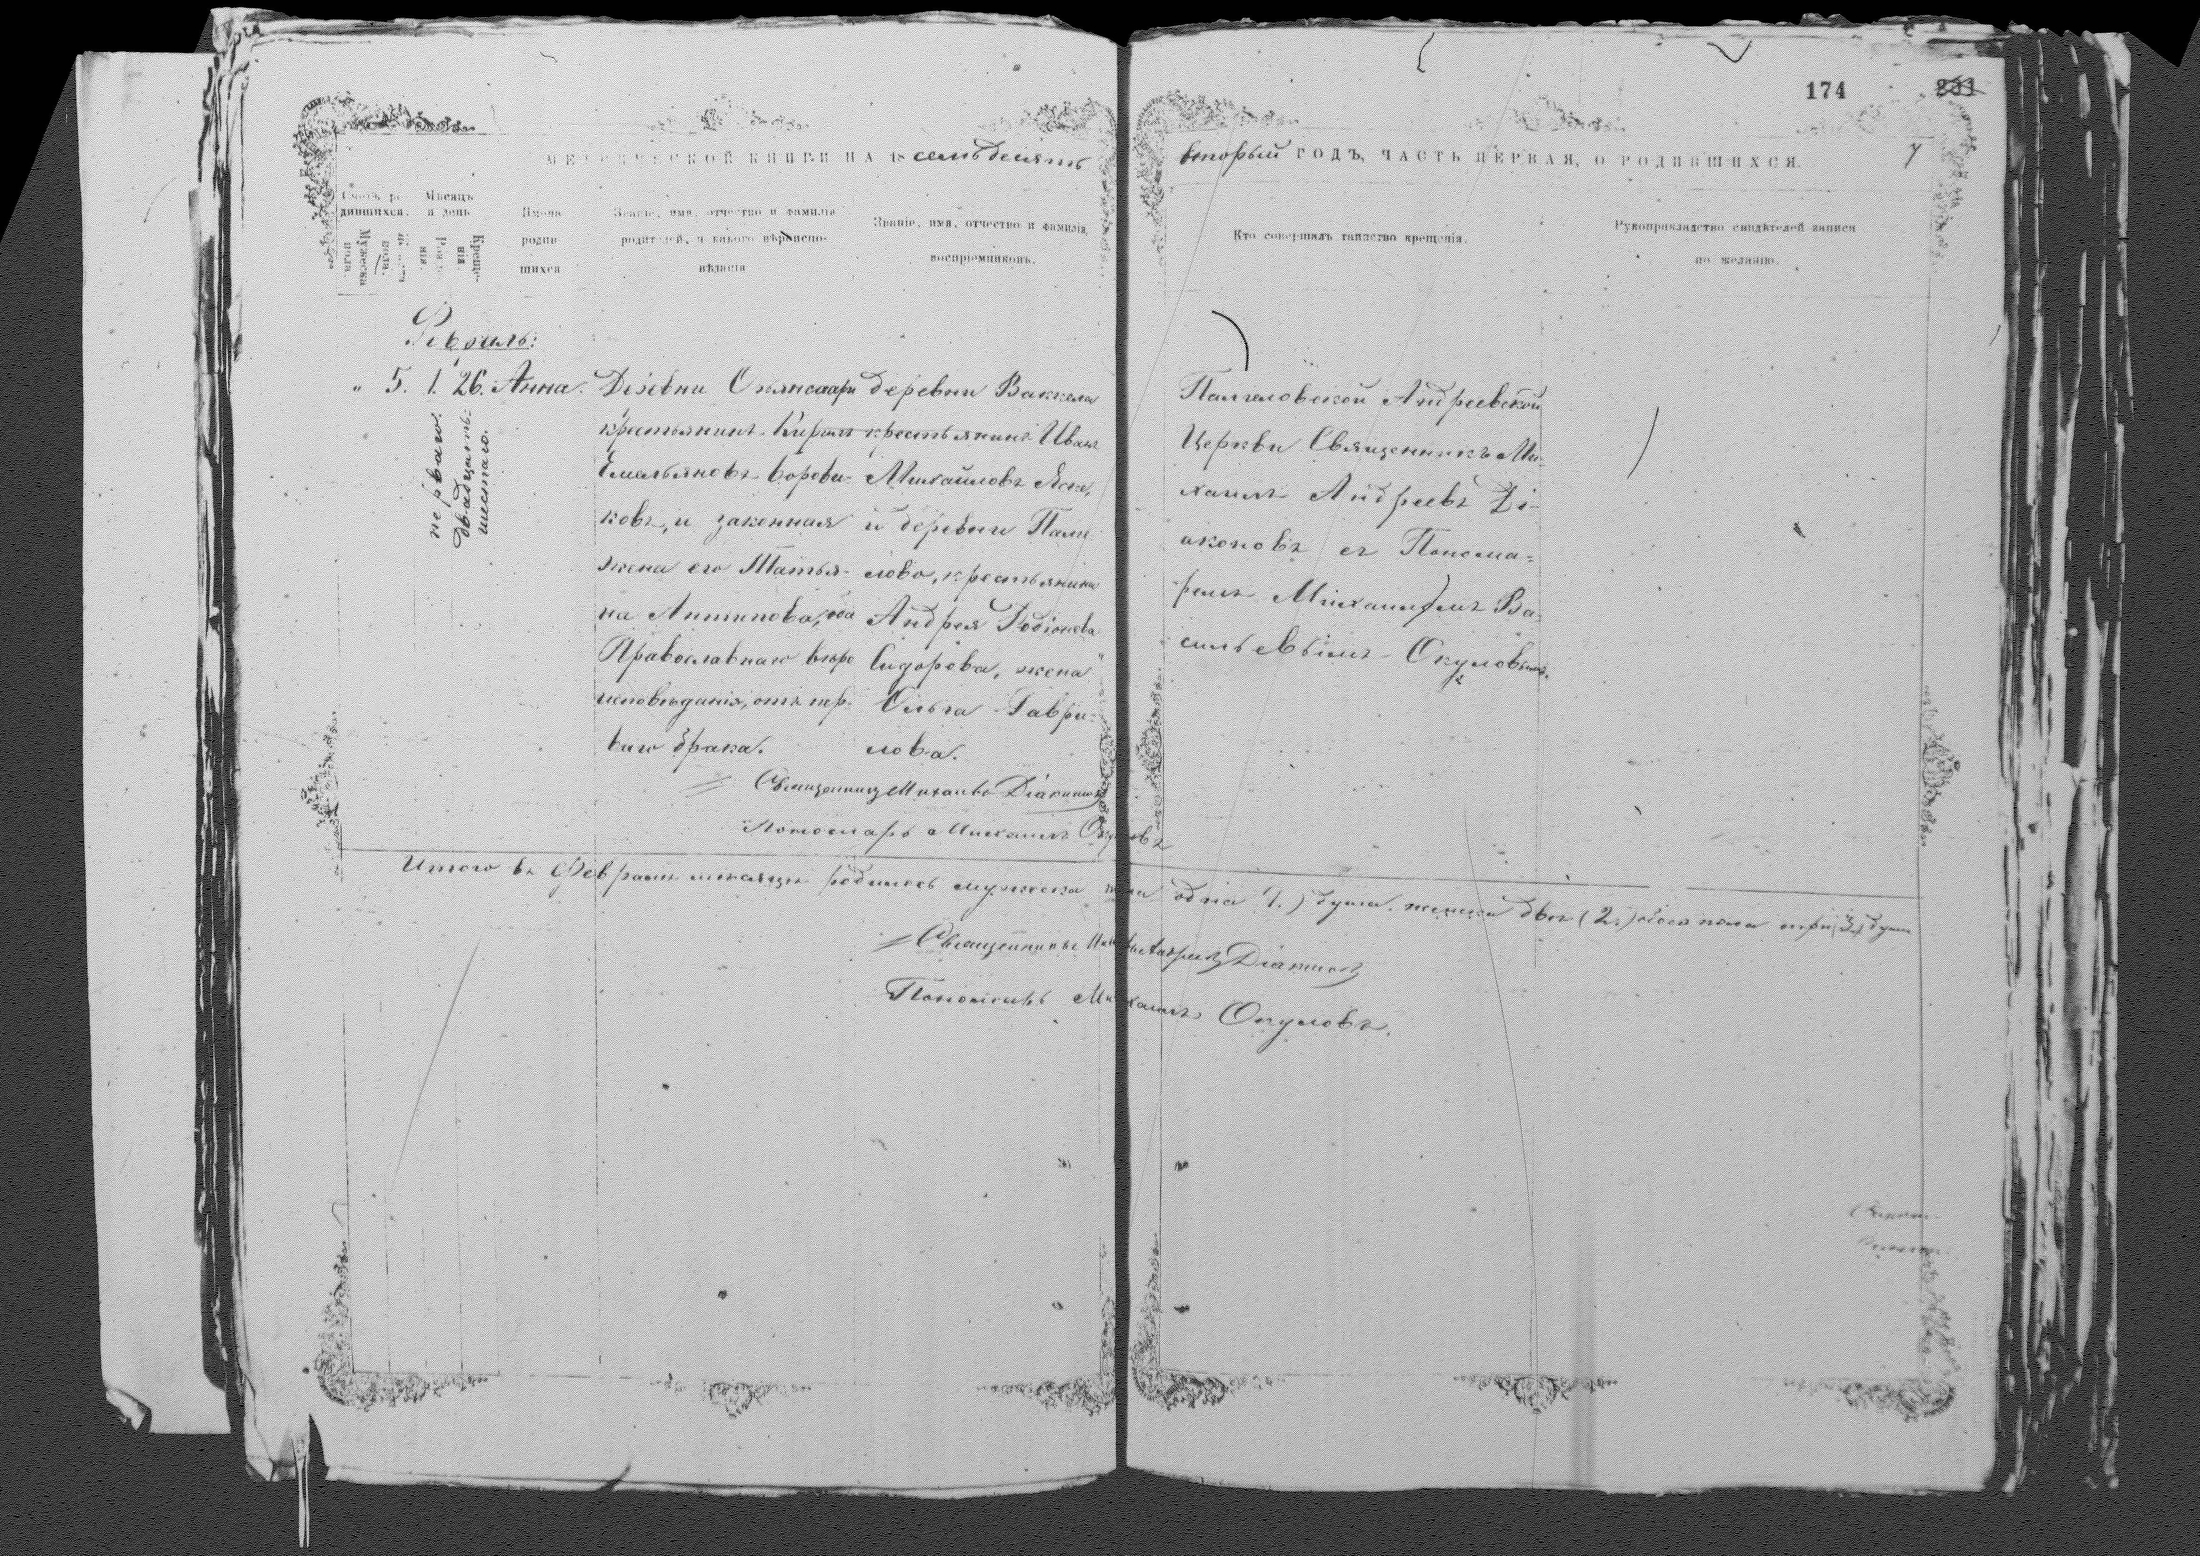 174
МЕТРИЧЕСКОЙ КНИГИ НА 18 семьдесятъ вторый ГОДЪ, ЧАСТЬ ПЕРВАЯ, О РОДИВШИХСЯ. 7
Счетъ родившихся.
Мужеска пола.
Мѣсяцъ и день
Крещенія
Имена родившихся
Званіе, имя, отчество и фамилія родителей, и какого вѣроисповѣданія
Званіе, имя, отчество и фамилія воспріемниковъ.
Кто совершалъ таинство крещенія.
Рукоприкладство свидѣтелей записи по желанію.
Февраль:
" 5. 1. 26. Анна.
перваго.
двадцать
шестаго.
Деревни
крестьянинъ
Емельяновъ Борови-
ковъ, и законная
жена его Татья-
на Антипова, оба
Православнаго вѣро
исповѣданія, отъ пер-
ваго брака.
деревни Ваккела
крестьянинъ Иванъ
Михайловъ
и деревни
лово, крестьянина
Андрея Родіонова
Сидорова, жена
Ольга Гаври-
лова.
Андреевской
Церкви Священникъ Ми-
хаилъ Андреевъ Ді-
аконовъ съ Понома-
ремъ Михаиломъ Ва-
сильевымъ Окуловымъ.
Священникъ Михаилъ Діаконовъ
Пономарь Михаилъ Окуловъ
Итого въ Февралѣ мѣсяцѣ родилось мужеска пола одна (1.) душа, женска двѣ (2.) обоего пола три (3.) души
Священникъ Михаилъ Андреевъ Діаконовъ
Пономарь Михаилъ Окуловъ.